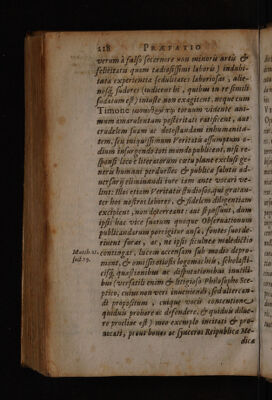 218 PRÆFATIO
verum à falso secernere non minoris artis &
felicitatis quam tædiosissimi laboris) indubi-
tata experientia sedulitates laboriosas, alie-
nosq́, sudores (iudicent hi, quibus in re simili
sudatum est) iniuste non exagitent, neque cum
Timone torum vident ani-
mum amarulentum posteritati ratificent, aut
crudelem suam ac detestandam inhumanita-
tem, seu iniquissimum Veritatis assumptum o-
dium insurgendo toti mundo publicent, nisi re-
sponsi loco è literatorum cœtu plane exclusi ge-
neris humani perduelles & publicæ salutis ad-
versarij eliminandi iure tam ante vocari ve-
lint: Illos etiam Veritatis studiosos, qui gratan-
ter hos nostros labores, & fidelem diligentiam
excipient, non deterreant: aut si possunt, dum
ipsi hac vice suarum quoque Observationum
publicandarum porrigitur ansa, fontes suos de-
rivent foras, ac, ne ipsis siculneæ maledictio
Matth. 21.
contingat, lucem accensam sub modio depro-
mant, & omissis otiosis logomachiis, scholasti-
cisq́, quæstionibus ac disputationibus inutili-
bus (versatilis enim & litigiosi Philosophi Sce-
ptici, cuius non veri inveniendi, sed altercan-
di propositum, cuique vocis consecutione
quiduis probare ac defendere, & quiduis dilue-
re proclive est) meo exemplo invitati & pro-
vocati, prout bonos ac synceros Reipublicæ Me-
dicæ